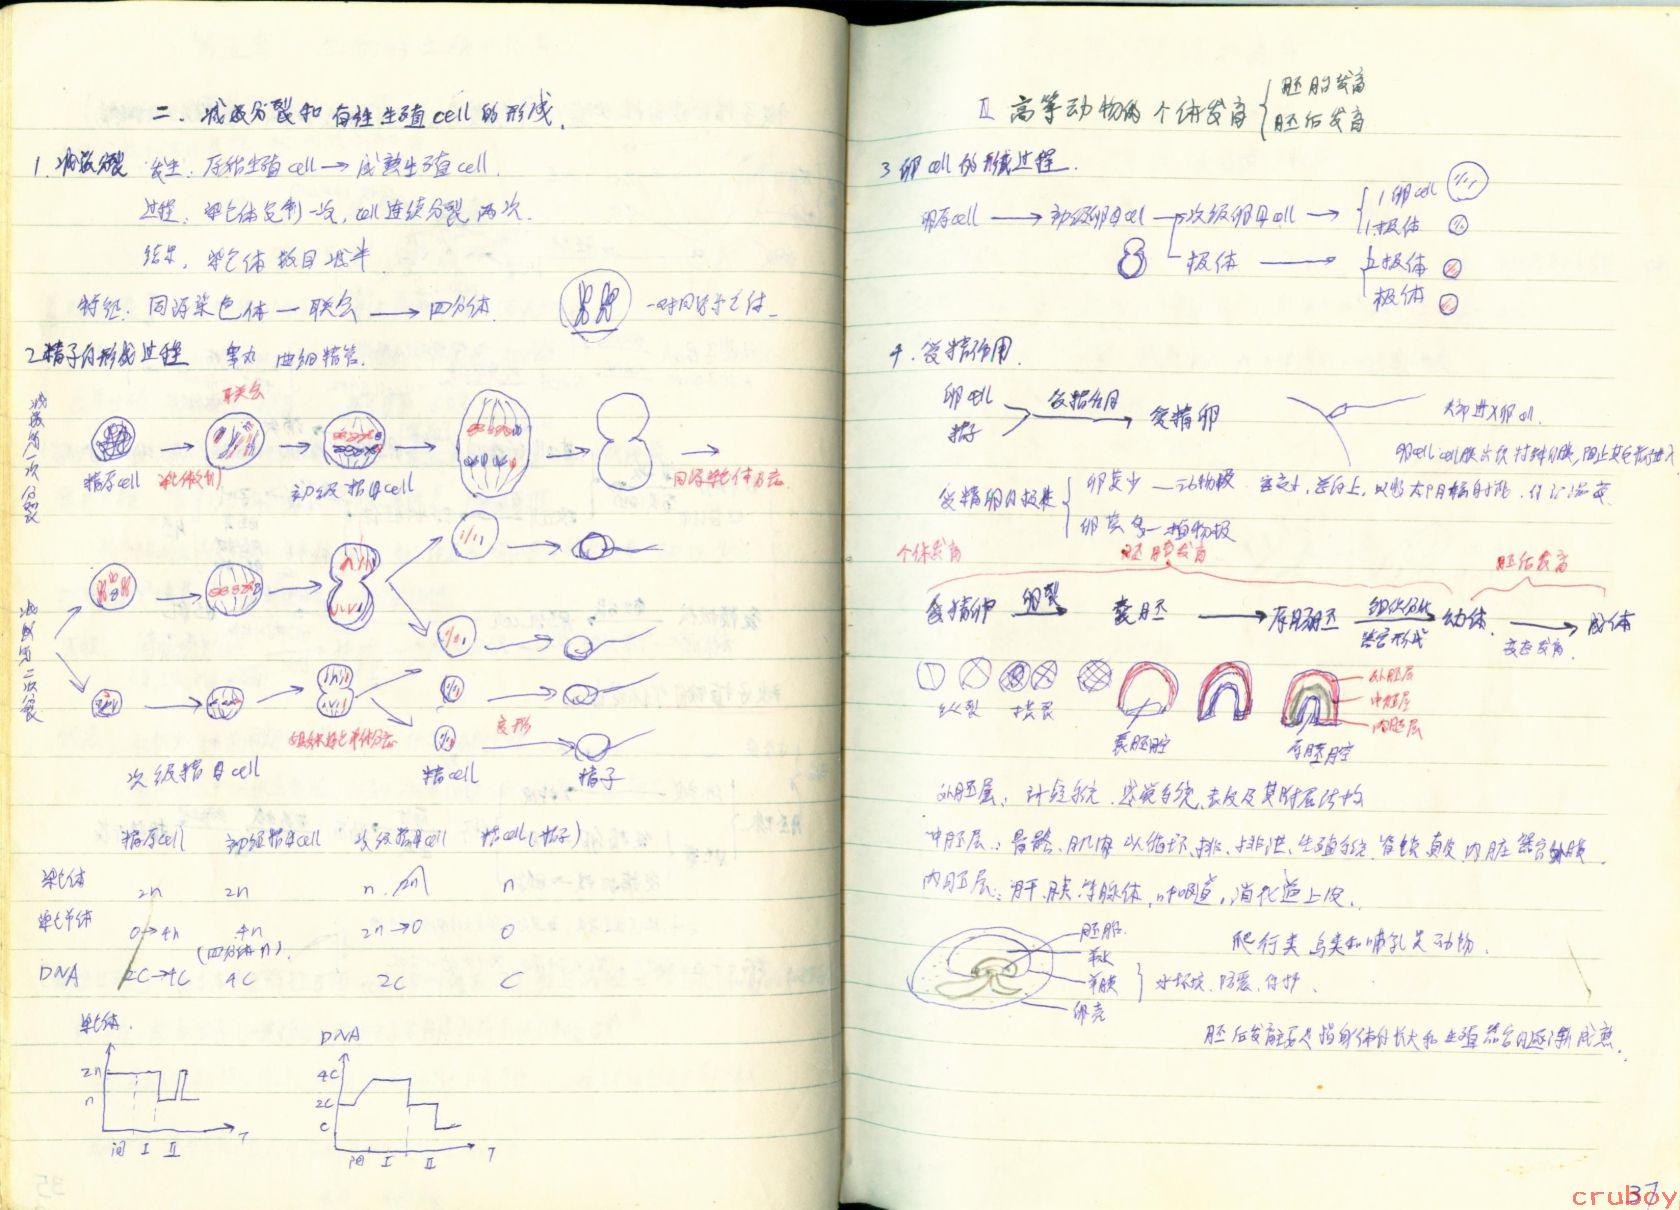 二、减数分裂和有性生殖cell的形成.
1.减数分裂 发生: 原始生殖cell→成熟生殖cell.
过程: 染色体复制一次, cell连续分裂两次.
结果, 染色体数目减半
特征: 同源染色体—联会→四分体.
一对同源染色体
2.精子的形成过程 睾丸 曲细精管.
减数第一次分裂
联会
精原cell
染色体复制
初级精母cell
同源染色体分离
减数第二次分裂
着丝点 染色单体分离
变形
次级精母cell
精cell
精子
精原cell 初级精母cell 次级精母cell 精cell(精子)
染色体 2n 2n n.(2n) n
染色单体 0→4n 4n 2n→0 0
(四分体n).
DNA 2C→4C 4C 2C C
染色体.
2n
n
间 I II T
DNA
4C
2C
C
间 I II T
II 高等动物的个体发育 { 胚胎发育
胚后发育
3 卵cell的形成过程.
卵原cell → 初级卵母cell → 次级卵母cell → 1卵cell
1极体
极体 → 极体
极体
4. 受精作用.
卵cell
精子
受精作用
受精卵
头部进入卵cell.
受精卵的极性 { 卵黄少—动物极
卵黄多—植物极
个体发育
胚胎发育
胚后发育
受精卵 卵裂→ 囊胚 → 原肠胚 组织分化→ 幼体. → 成体
器官形成
变态发育.
纵裂 横裂
囊胚腔
外胚层
中胚层
内胚层
原肠腔
外胚层: 神经系统. 感觉系统, 表皮及其附属结构
中胚层: 骨骼、肌肉以及循环、排泄、生殖系统. 脊索 真皮 内脏器官外膜
内胚层: 肝 胰等腺体, 呼吸道, 消化道上皮.
胚胎.
羊水
羊膜
卵壳
爬行类 鸟类和哺乳类动物.
水环境, 防震, 保护.
胚后发育主要是指身体的长大和生殖器官的逐渐成熟.
37
cruboy